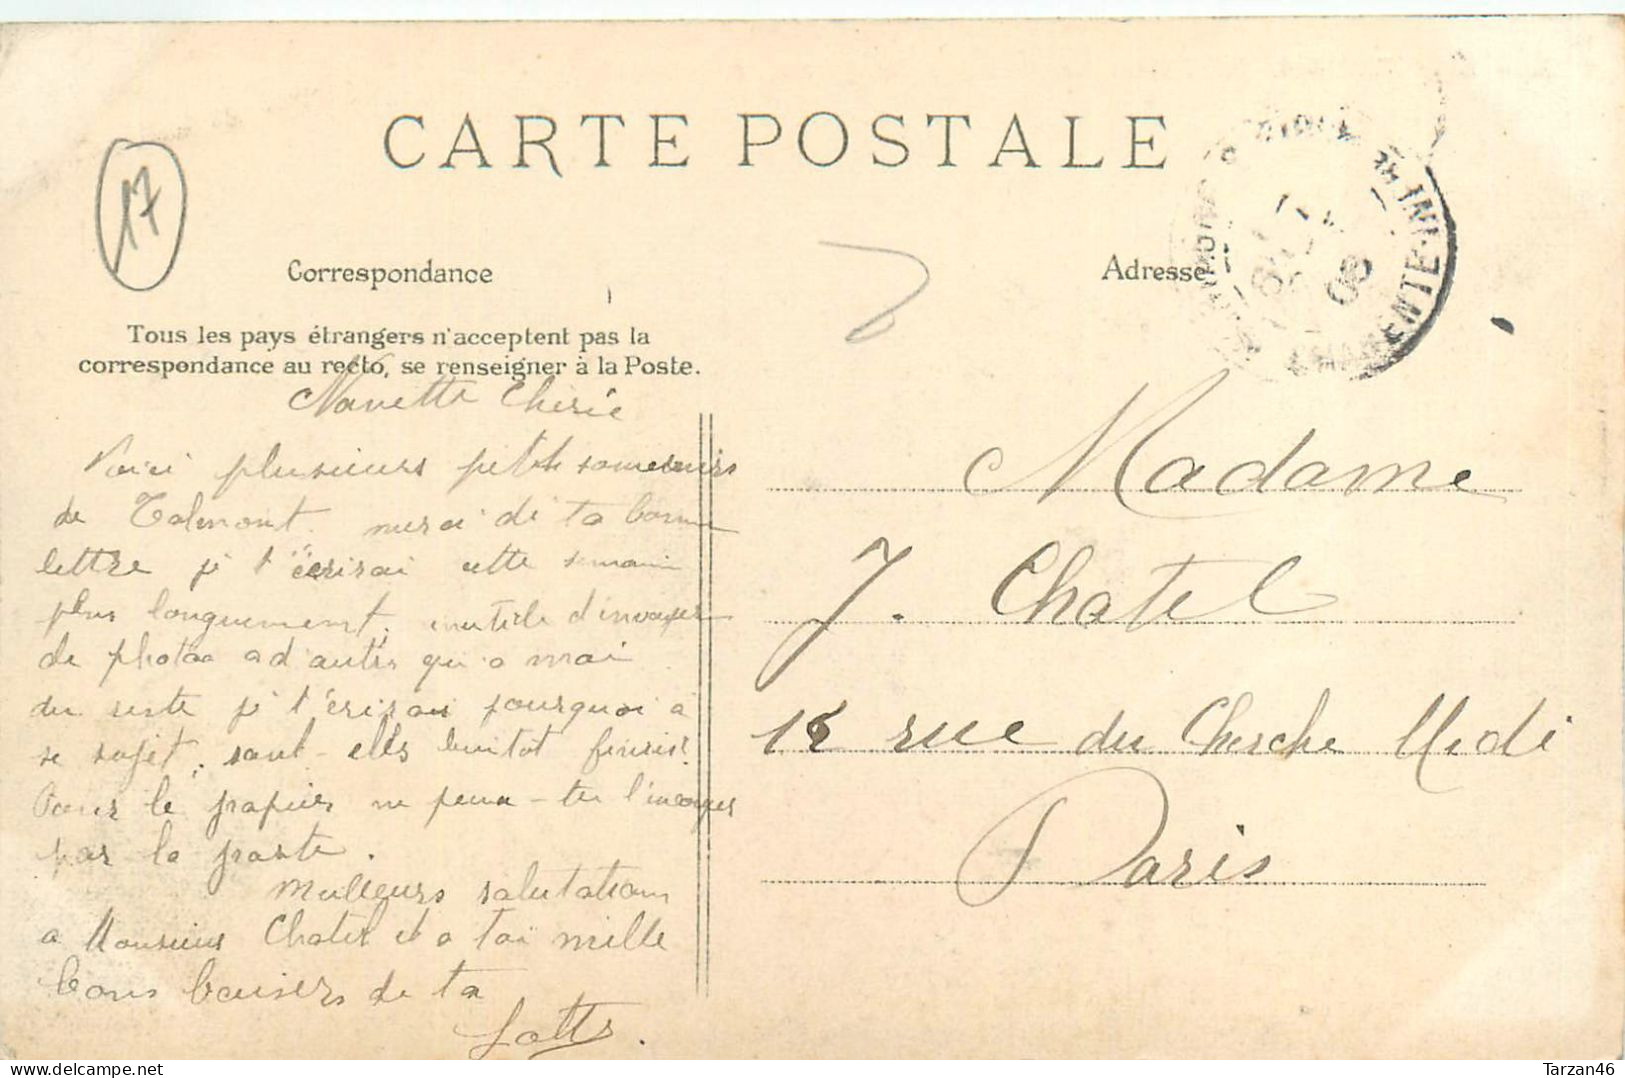 CARTE POSTALE
17
Correspondance
Adresse
Tous les pays étrangers n'acceptent pas la
correspondance au recto, se renseigner à la Poste.
CHARENTE-INF
08
Nanette Chérie
Voici plusieurs petits
de Talmont merci de ta bonne
lettre je t'écrirai cette semaine
plus longuement, inutile d'envoyer
de photos a d'autres qu'a moi
du reste je t'écrirai pourquoi a
se sujet, sont-elles bientot finis?
le papier ne peux-tu l'envoyer
par la poste.
Meilleurs salutations
a Monsieur Chatel et a toi mille
bons baisers de ta
Lotte.
Madame
J. Chatel
rue du Cherche Midi
Paris
Tarzan46